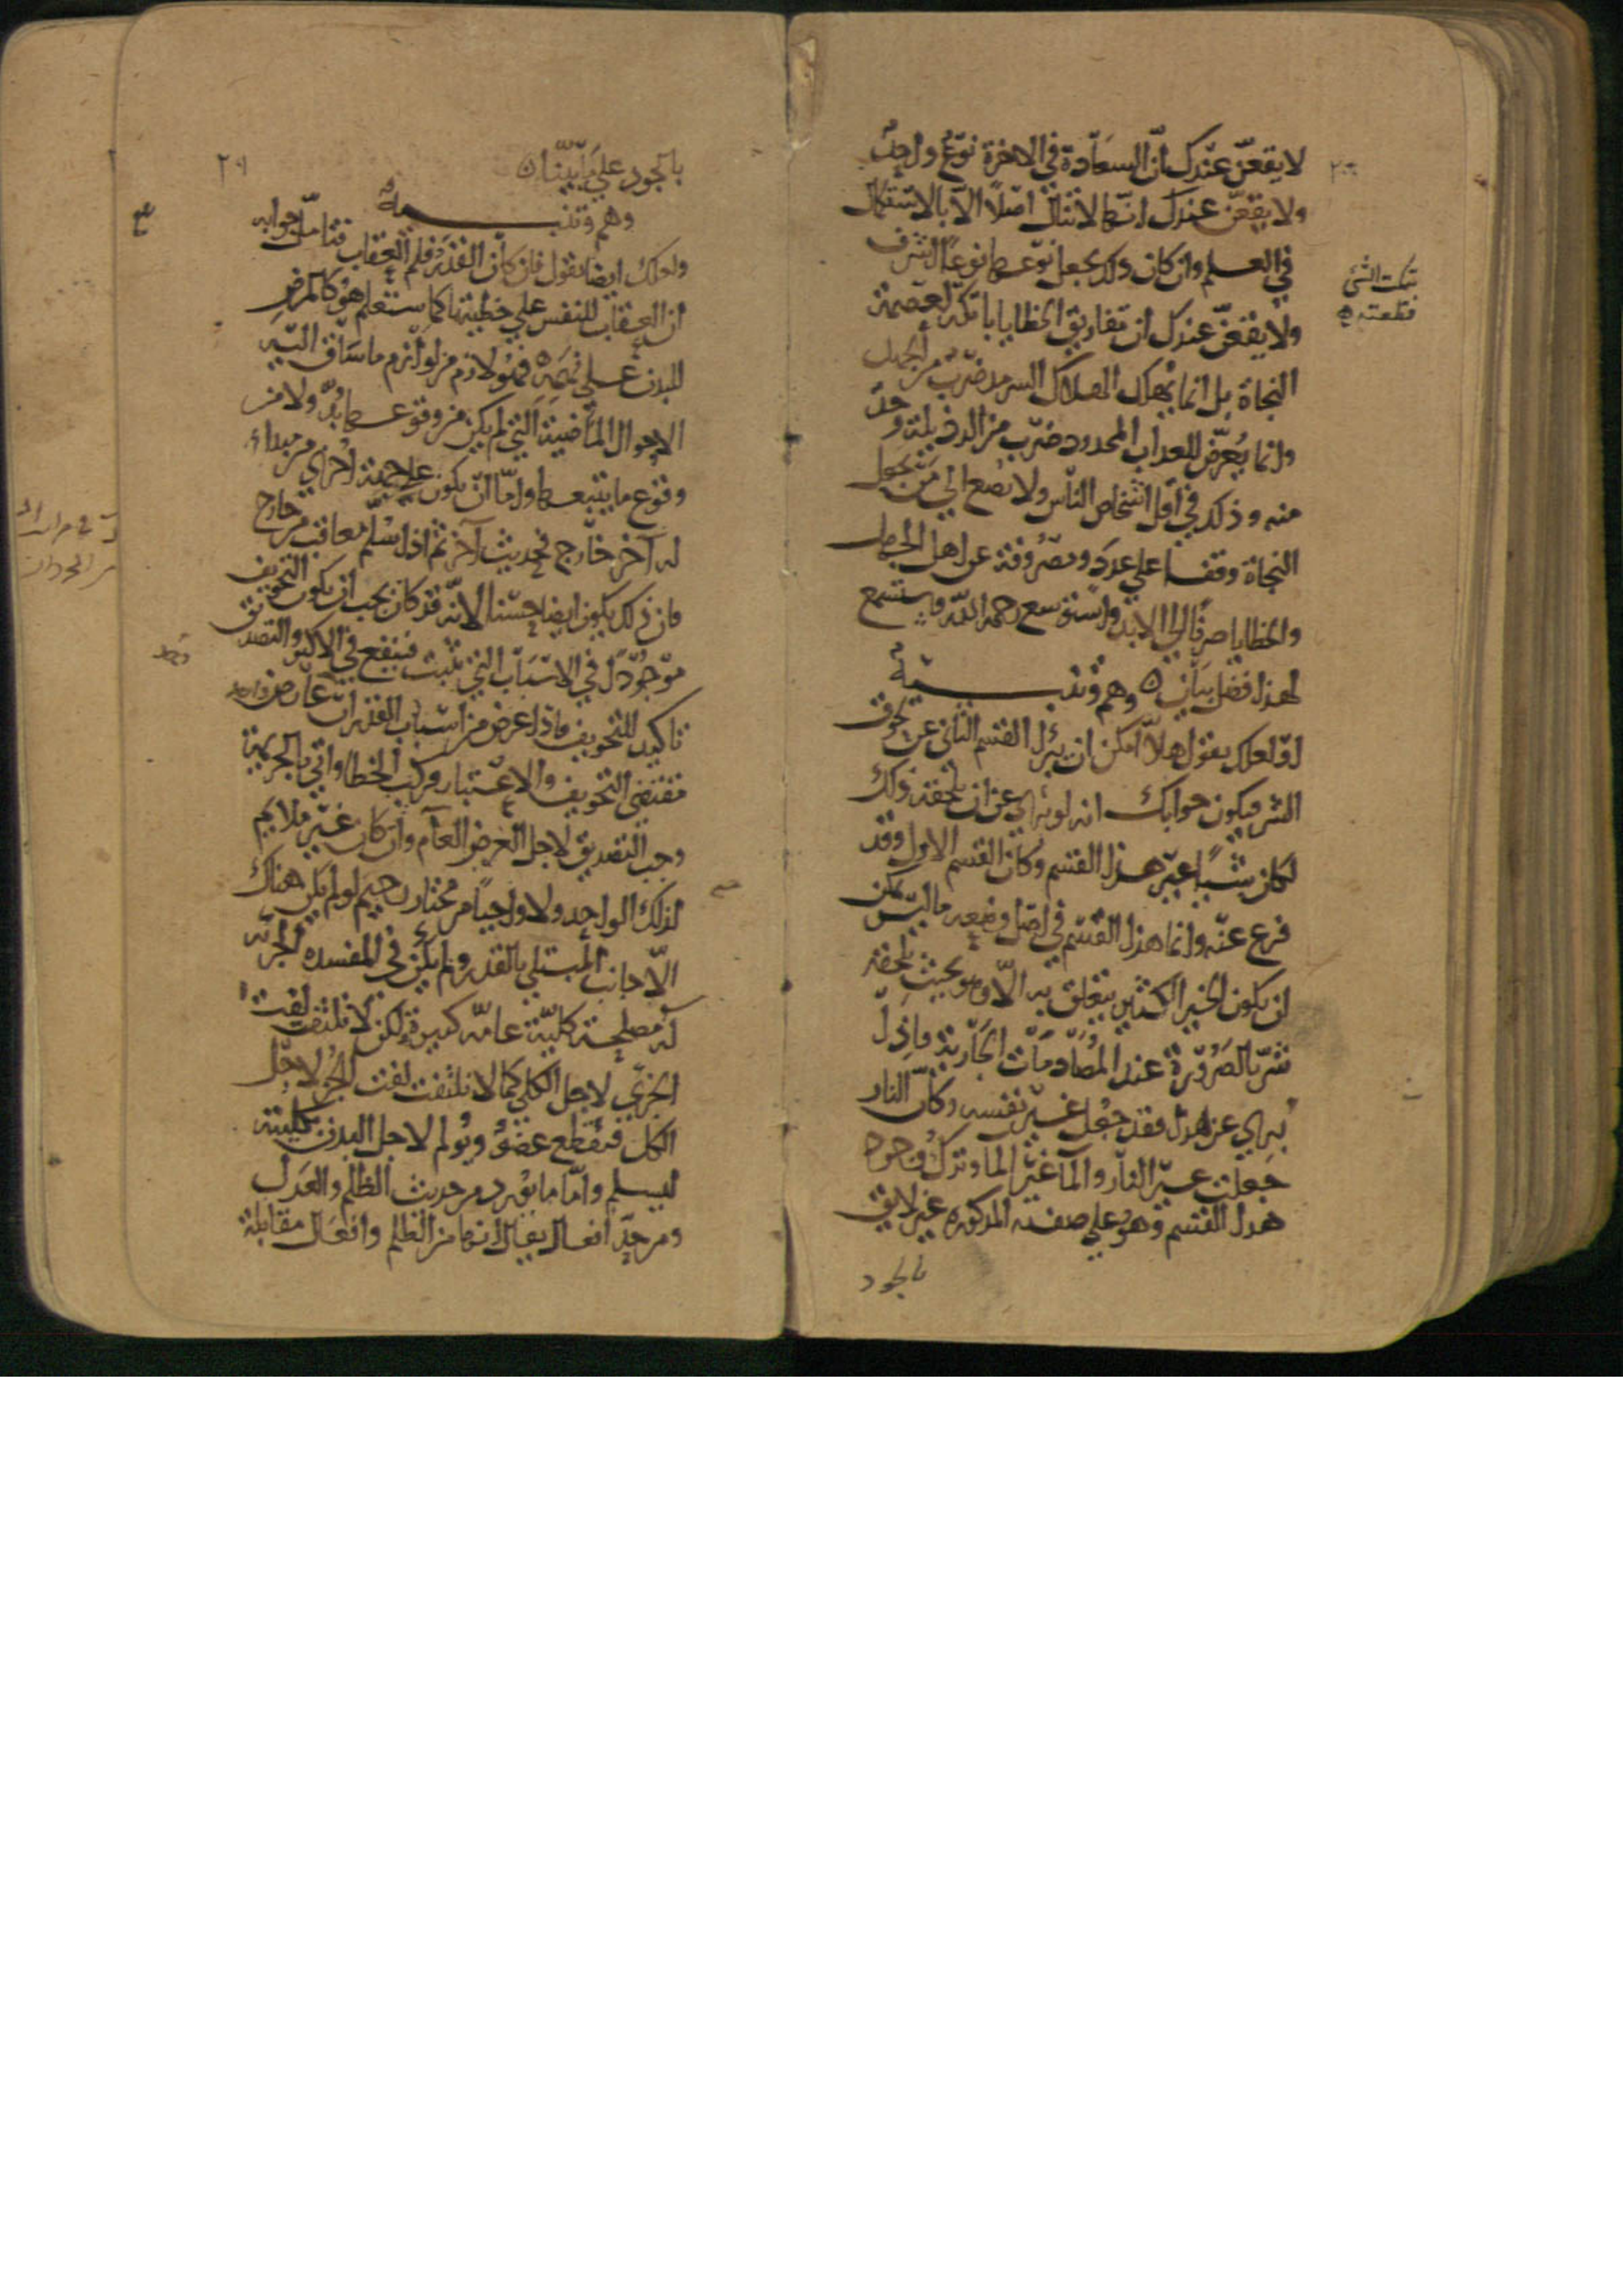 لا يقعنّ عندك أنّ السعادة في الاخرة نوع واحد
ولا يقعنّ عندك انها لا تنال اصلًا الّا بالاستكمال
في العلم وان كان ذلك يجعل نوعها نوعًا اشرف
ولا يقعنّ عندك ان تفاريق الخطايا باتكة لعصمة
النجاة بل انما يهلك الهلاك السرمد ضرب من الجهل
وانما يُعرّض للعذاب المحدود ضرب من الرذيلة وحدّ
منه وذلك في اقل اشخاص الناس ولا تصغ الي من يجعل
النجاة وقفا علي عدد ومصروفة عن اهل الجهل
والخطايا صرفا الي الابد واستوسع رحمة الله وستسمع
لهذا فضل بيان ه وهم وتنبيه
او لعلك يقول هلّا امكن ان يبرا القسم الثاني عن لحوق
الشر فيكون جوابك انه لو برئ عن ان يلحقه ذلك
لكان شيًا غير هذا القسم وكان القسم الاول وقد
فرغ عنه وانما هذا القسم في اصل وضعه ما ليس يمكن
ان يكون الخير الكثير يتعلق به الّا وهو بحيث يلحقه
شرّ بالضرورة عند المصادمات الحادثة فاذا
برئ عن هذا فقد جعل غير نفسه وكأنّ النار
جعلت غير النار والمآ غير الما وترك وجود
هذا القسم وهو علي صفته المذكوره غير لايق
بالجود
بتكت الشي
قطعته ه
بالجود علي ما بيّنّا ه
وهم وتنبيه
ولعلك ايضا يقول فان كان القدر فلم العقاب فتامل جوابه
ان العقاب للنفس علي خطيتها كما ستعلم هو كالمرض
للبدن علي نهمه فهو لازم من لوازم ما ساق اليه
الاحوال الماضية التي لم يكن من وقوعها بدّ ولا من
وقوع ما يتبعها واما ان يكون علي جهة اخري من مبداء
له آخر خارج فحديث آخر ثم اذا سلّم معاقب من خارج
فان ذلك يكون ايضا حسنا لانه قد كان يجب ان يكون التخويف
موجودًا في الاسباب التي تثبت فينفع في الاكثر والتصديق
تاكيد للتخويف فاذا عرض من اسباب القدر ان عارض واحد
مقتضى التخويف والاعتبار فركب الخطا واتي بالجريمة
وجب التصديق لاجل الغرض العام وان كان غير ملايم
لذلك الواحد ولا واجبًا من مختار رحيم لو لم يكن هناك
الّا جانب المبتلي بالقدر ولم يكن في المفسده الجزئيه
له مصلحة كليّة عامّه كبيرة لكن لا يلتفت لفت
الجزئي لاجل الكلي كما لا يلتفت لفت الجزء لاجل
الكل فيقطع عضو ويُولم لاجل البدن بكليته
ليسلم وامّا ما يورد من حديث الظلم والعدل
ومن حديث افعال يقال انها من الظلم وافعال مقابلة